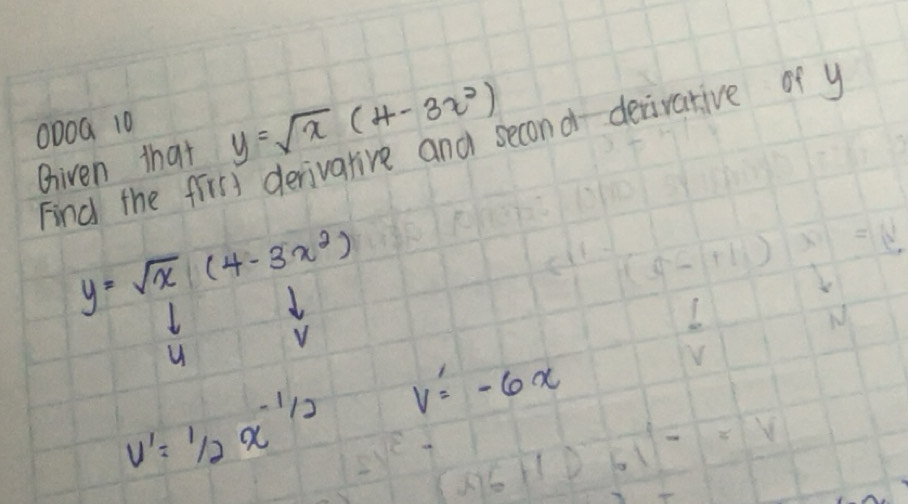 ODOA 10
Given that y = √x (4 - 3x²)
Find the first derivative and second derivative of y
y = √x (4 - 3x²)
↓ ↓
u v
v' = 1/2 x^-1/2 v' = -6x